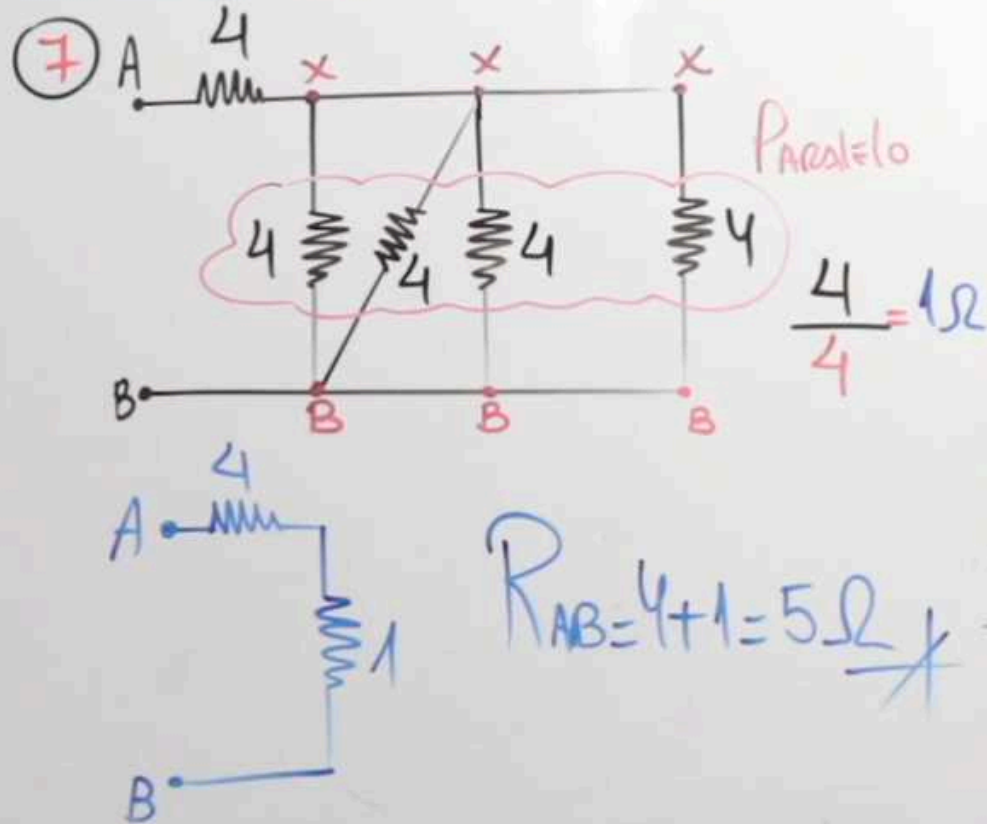 7 A 4 X X X
Paralelo
4 4 4 4
4/4 = 1Ω
B B B B
4
A
1
B
R_AB = 4+1 = 5Ω